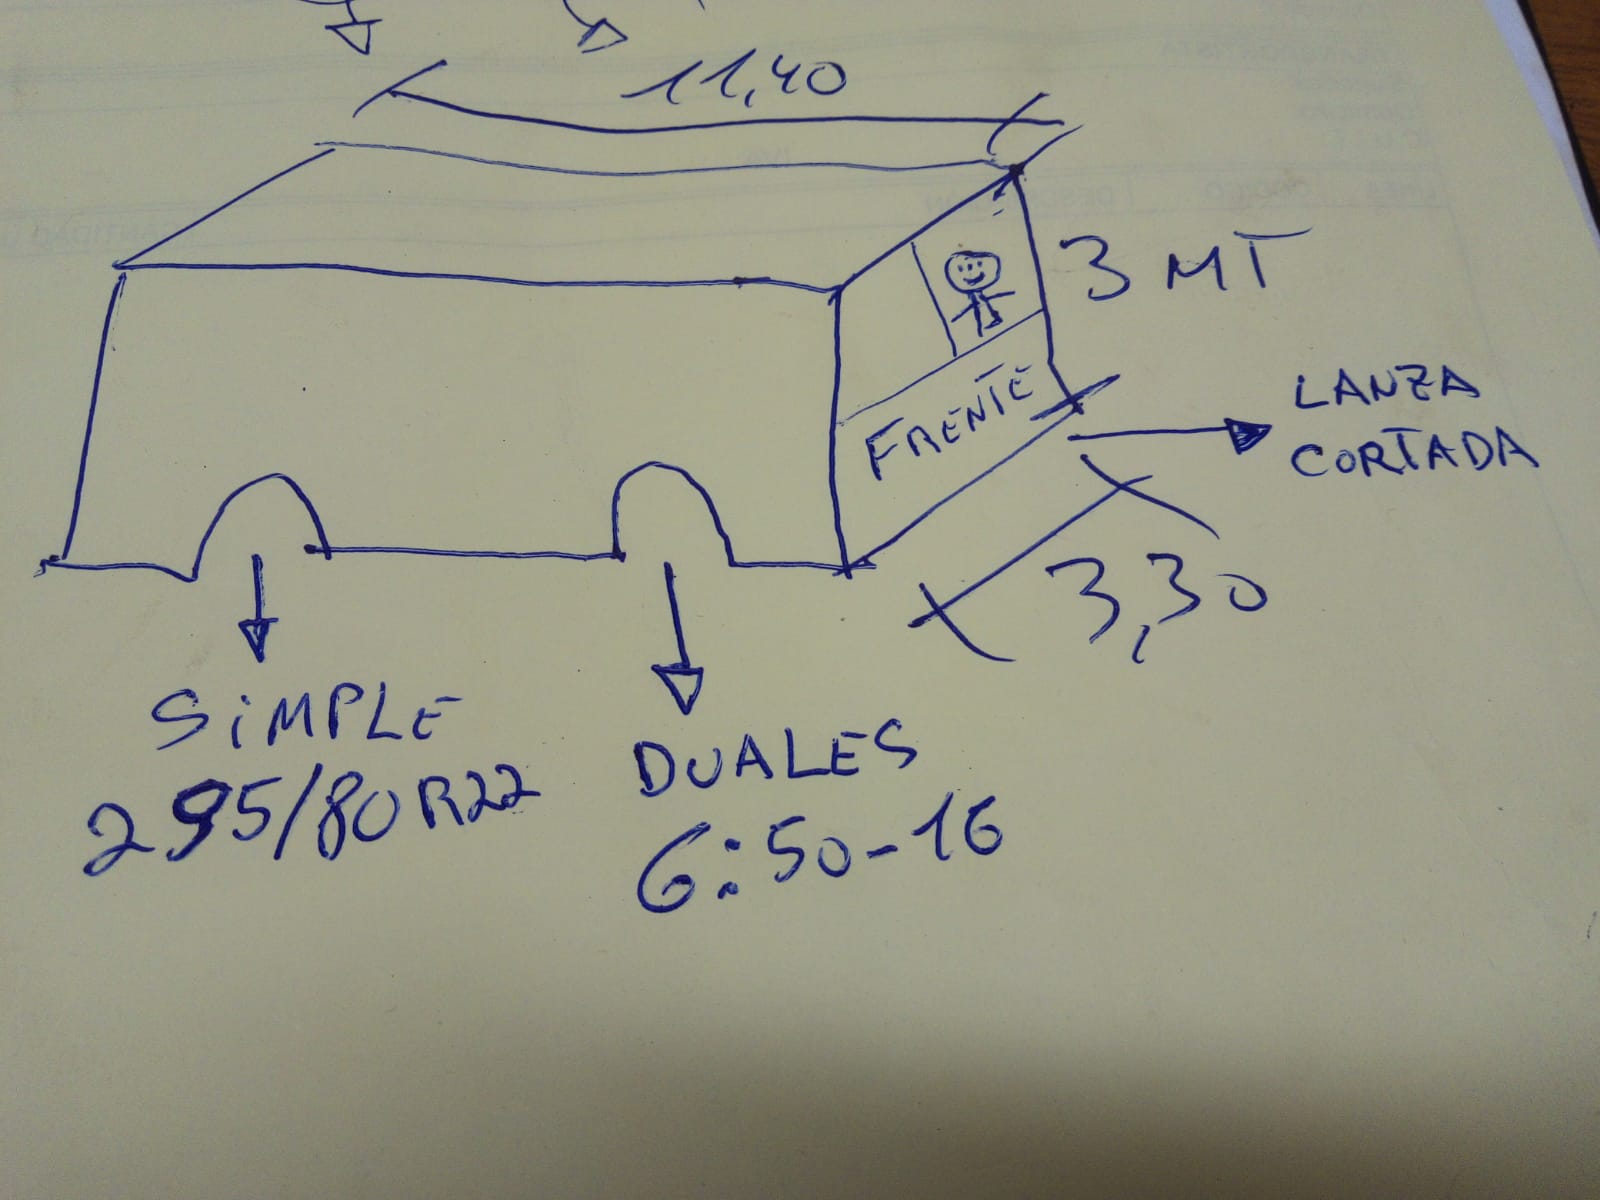 11,40
3 MT
FRENTE
LANZA
CORTADA
3,30
SiMPLE
295/80R22
DUALES
6:50-16